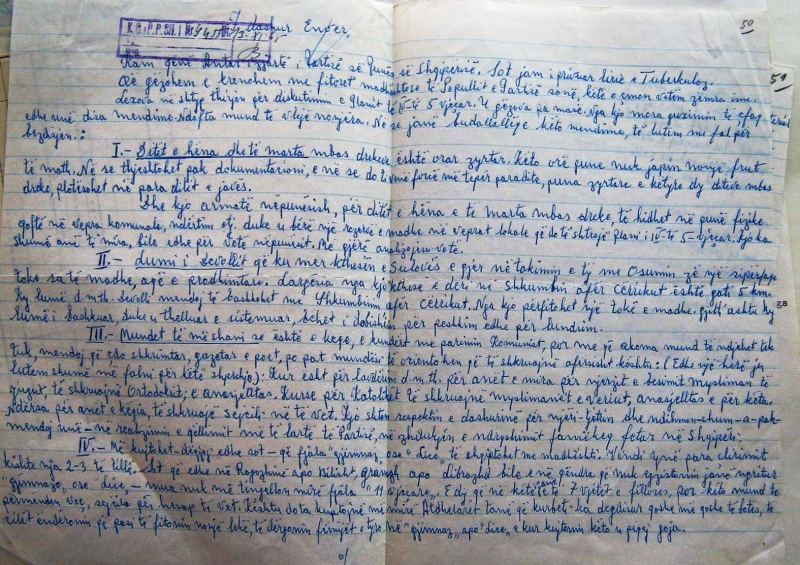 I dashur Enver,
50
K.Q.i P.P.SH.
Kam qënë Antar i thjeshtë i Partisë së Punës së Shqipërisë. Sot jam i privuar lirie e Tuberkuloz.
Që gëzohem e krenohem me fitoret madhështore të Popullit e Partisë sonë, këtë e çmon vetëm zëmra ime.
51
Lexova në shtyp thirjen për diskutimin e Planit të IV-të 5 vjeçar. U gëzova pa masë. Nga kjo mora guximin të çfaq
edhe unë disa mendime. Ndofta mund të vlejë nonjëra. Në se janë budallallëqe këto mendime, të lutem me fal për
bezdisjen.:
I.- Ditët e hëna dhe të marta mbas dreke është orar zyrtar. Këto orë pune nuk japim nonjë frut
të math. Në se thjeshtohet pak dokumentacioni, e në se do të vemë forcë më tepër paradite, puna zyrtare e këtyre dy ditëve mbas
dreke, plotësohet në para ditët e javës.
Dhe kjo armatë nëpunësish, për ditët e hëna e të marta mbas dreke, të hidhet në punë fizike
qoftë në vepra komunale, ndërtim etj. duke u bërë një rezervë e madhe në veprat lokale që do të shtrojë plani i IV-të 5-vjeçar. Kjo ka
shumë anë të mira, bile edhe për vetë nëpunësit. Më gjërë analizojeni vetë.
II.- Lumi i Devollit që ku merr kthesën e Sulovës e gjer në takimin e tij me Osumin zë një sipërfaqe
toke sa të madhe, aqë e prodhimtare. Largësia nga kjo kthesë e deri në Shkumbin afër Cërrikut është gati 5 km.
Ky lumë d.m.th. Devolli mendoj të bashkohet me Shkumbinin afër Cërrikut. Nga kjo përfitohet një tokë e madhe. gjith'ashtu ky
lumë i bashkuar, duke u thelluar e sistemuar, bëhet i dobishëm për peshkim edhe për lundrim.
III.- Mundet të më shani se është e huaj, e kundërt me parimin Komunist, por me që akoma mund të ndjehet tek
tuk, mendoj që çdo shkrimtar, gazetar e poet, po pat mundësi të orientohen që të shkruajnë afërsisht kështu: (Edhe një herë ju
lutem shumë më falni për këtë shprehje): Kur ësht për lavdërim d.m.th. për anët e mira për njerzit e besimit Mysliman të
jugut, të shkruajnë Ortodoksit, e anasjelltas. Kurse për Katolikët të shkruajnë myslimanët e veriut, anasjelltas e për këta.
Ndërsa për anët e këqia, të shkruajë sejcili në të vet. Kjo shton respektin e dashurinë për njëri-tjetrin dhe ndihmon-shum-a-pak-
mendoj unë- në realizimin e qëllimit më të lartë të Partisë, në zhdukjen e ndryshimit famëkeq fetar në Shqipëri.
IV.- Më kujtohet- dëgjoj edhe sot- që fjala "gjimnaz" ose "lice", të shqiptohet me madhështi. Vëndi ynë para çlirimit
kishte nja 2-3 të tillë. Sot që edhe në Rogozhinë apo Bilisht, Gramsh apo Librazhd bile e në qëndra që nuk egzistonin janë ngritur
"gjimnaze" ose "lice", - mua nuk më tingëllon mirë fjala "11 vjeçare". E dij që në këtë janë të 7 vjetët e fillores, por këto mund të
përmenden veç, sejcila për hesap të vet. Kështu do ta kuptojnë më mirë Atdhetarët tanë që kurbet- ka degdisur qoshe më qoshe të botës, të
cilët ëndërronin që pasi të fitonin nonjë lekë, të dërgonin fëmijët e tyre në "gjimnaz" apo "lice", e kur kujtonin këto u piqej goja.